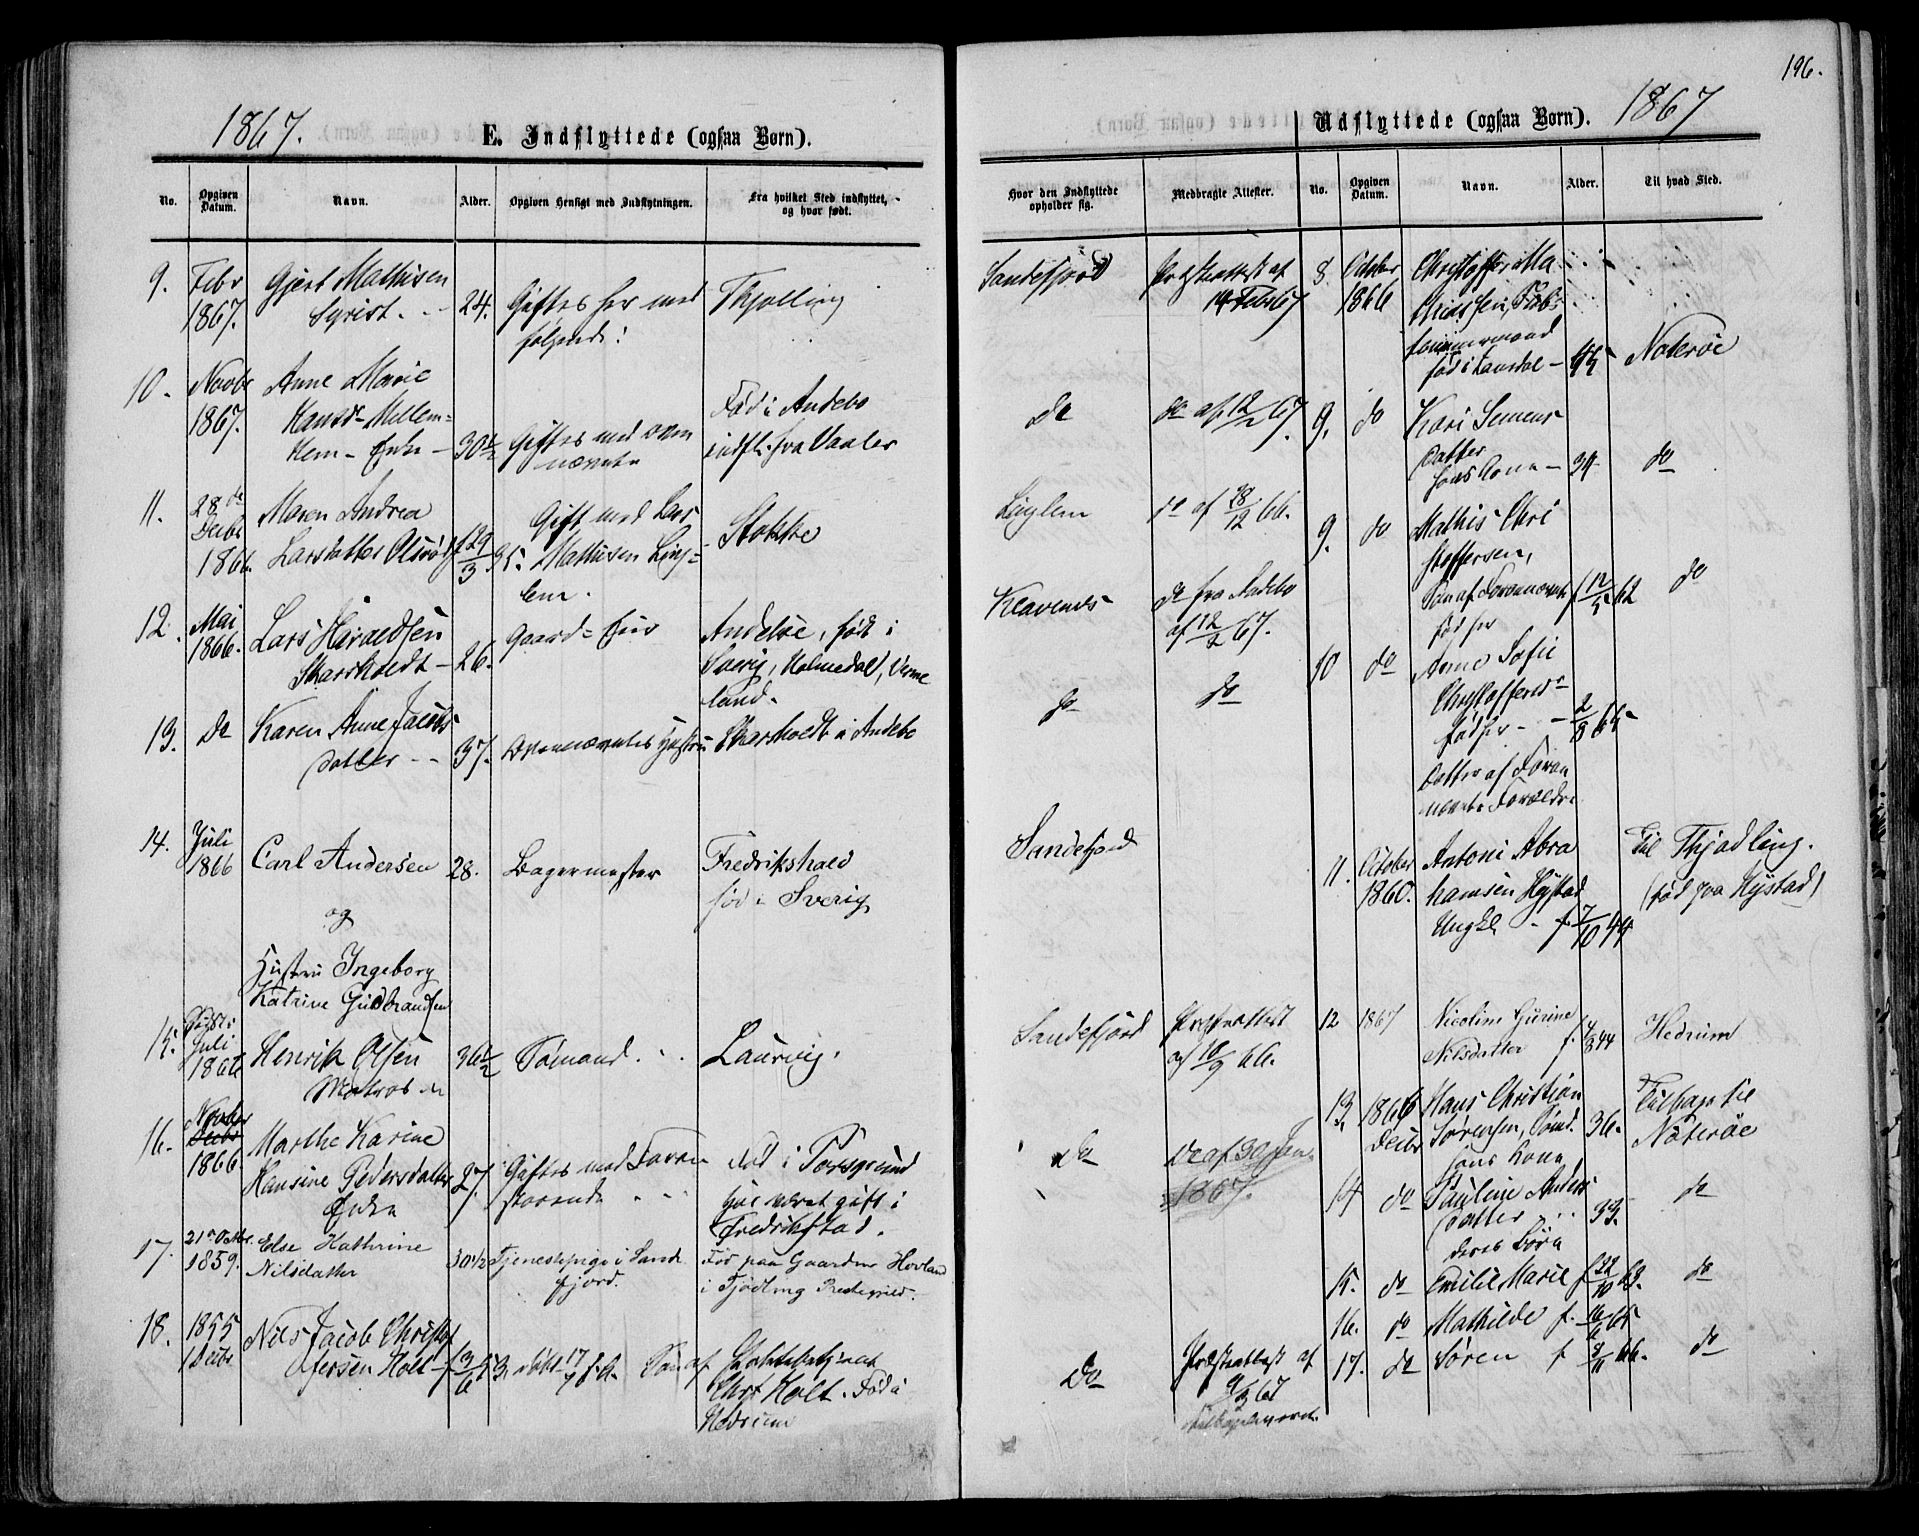 196.
1867.
E. Indflyttede (ogsaa Børn).
No.
Opgiven Datum.
Navn.
Alder.
Opgiven Hensigt med Indflytningen.
Fra hvilket Sted indflyttet, og hvor født.
9. Febr 1867.
Gjert Mathisen
24.
Giftes her med
følgende:
Thjølling
10. Novbr 1867.
Anne Marie
Hansd= Mellem=
Enke
30½
Giftes med oven
nævnte
Fød i Andebo
indfl. fra Vaaler
11. 28de Decbr 1866.
Maren Andrea
Larsdatter
f 29/3 35.
Gift med Lars
Mathisen Ling=
lem.
Stokke
12. Mai 1866.
Lars
Skarsholdt
26.
Gaard=
Andebo, født i
Sverig, Holmedal, Verme
land.
13. Do
Karen Anne Jacobs
datter
37.
Ovennævntes Hustru
Skarsholdt i Andebo
14. Juli 1866
Carl Andersen
28.
Bagermester
Fredrikshald
fød i Sverig
og
Hustru Ingeborg
Katrine Gudbrandsen
15. Juli 1866
Henrik Olsen
Matros
36½
Sømand.
Laurvig.
16. Novbr 1866.
Marthe Karine
Hansine Pedersdatter
Enke
27.
Giftes med Foran
staaende
Fød i Porsgrund
har været gift i
Fredrikstad.
17. 21de Octbr. 1859.
Else Kathrine
Nilsdatter
30½
Tjenestepige i Sande
fjord.
Fød paa Gaarden Hovland
i Tjødling Prestegield.
18. 1855 Decbr
Nils Jacob Christof
fersen Holt
f 3/6 53
døbt 17/7 s. A. Søn af
Chrst Holt. Fød i
Hedrum
Udflyttede (ogsaa Børn).
1867
Hvor den Indflyttede opholder sig.
Medbragte Attester.
No.
Opgiven Datum.
Navn.
Alder.
Til hvad Sted.
Sandefjord
Præstattest af
14 Feb 67
8 October 1866
Christoffer Ma
thiassen, Tøm
mermand
fød i Laurdal
45
Nøterøe
do
do af 12/2 67.
9. do
Kari Simens
datter
hans Kone
34
do
Linglem
do af 28/12 66.
9. do
Mathis Chri
stoffersen,
Søn af Forannævnte
fød her
f 12/5 62
do
Klavenes
do fra Andebo
af 12/2 67.
do
do
10 do
Anne Sofie
Christoffersd=
fød her
2/8 65
Datter af Foran
nævnte Forældre
Sandefjord
11. October 1860.
Antoni Abra
hamsen Hystad
Ungkl f. 7/10 44
Til Thjødling.
(fød paa Hystad)
Sandefjord
Præstattest
af 10/9 66.
12 1867
Nicoline Gurine
Nilsdatter
f. 4/8 44
Hedrum
13. 1866 Decbr
Hans Christian
Sørensen, Sømd.
36.
Tilbage til
Nøterøe
Do
Do af 30 Jan
1867.
hans Kone
14 do
Pauline Anders
datter
33.
do
deres Børn
15. do
Emilie Marie
f 22/10 63.
do
16. do
Mathilde f.
65
Do
Præstattest af
9/3 67
tilbageleveret.
17. do
Søren f 8/11 66.
do